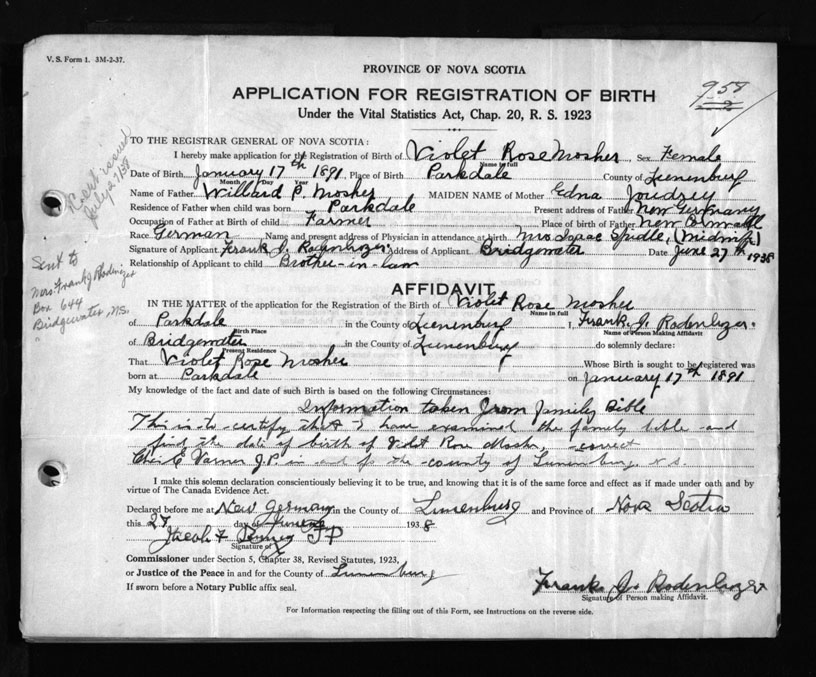 V. S. Form 1. 3M-2-37.
PROVINCE OF NOVA SCOTIA
APPLICATION FOR REGISTRATION OF BIRTH
Under the Vital Statistics Act, Chap. 20, R. S. 1923
958
TO THE REGISTRAR GENERAL OF NOVA SCOTIA:
I hereby make application for the Registration of Birth of Violet Rose Mosher Sex Female
Name in full
Date of Birth January 17th 1891 Place of Birth Parkdale County of Lunenburg
Month Day Year
Name of Father Willard P. Mosher MAIDEN NAME of Mother Edna Joudrey
Residence of Father when child was born Parkdale Present address of Father New Germany
Occupation of Father at Birth of child Farmer Place of birth of Father New Cornwall
Race German Name and present address of Physician in attendance at birth Mrs Isaac Spidle, (Midwife)
Signature of Applicant Frank J. Rodenhizer Address of Applicant Bridgewater Date June 27th 1938
Relationship of Applicant to child Brother-in-law
issued
July 2/38
Sent to
Mrs Frank J Rhodenizer
Box 644
Bridgewater, N.S.
AFFIDAVIT
IN THE MATTER of the application for the Registration of the Birth of Violet Rose Mosher
Name in full
of Parkdale in the County of Lunenburg I, Frank. J. Rodenhizer
Birth Place Name of Person Making Affidavit
of Bridgewater in the County of Lunenburg do solemnly declare:
Present Residence
That Violet Rose Mosher Whose Birth is sought to be registered was
born at Parkdale on January 17th 1891
My knowledge of the fact and date of such Birth is based on the following Circumstances:
Information taken from family Bible
This is to certify that I have examined the family bible and
find the date of birth of Violet Rose Mosher, correct
E Varner J.P. in and for the county of Lunenburg N.S.
I make this solemn declaration conscientiously believing it to be true, and knowing that it is of the same force and effect as if made under oath and by
virtue of The Canada Evidence Act.
Declared before me at New Germany in the County of Lunenburg and Province of Nova Scotia
this 27 day of June 1938
Jacob F J P
Signature of
Commissioner under Section 5, Chapter 38, Revised Statutes, 1923,
or Justice of the Peace in and for the County of Lunenburg
If sworn before a Notary Public affix seal.
Frank J. Rodenhizer
Signature of Person making Affidavit.
For Information respecting the filling out of this Form, see Instructions on the reverse side.